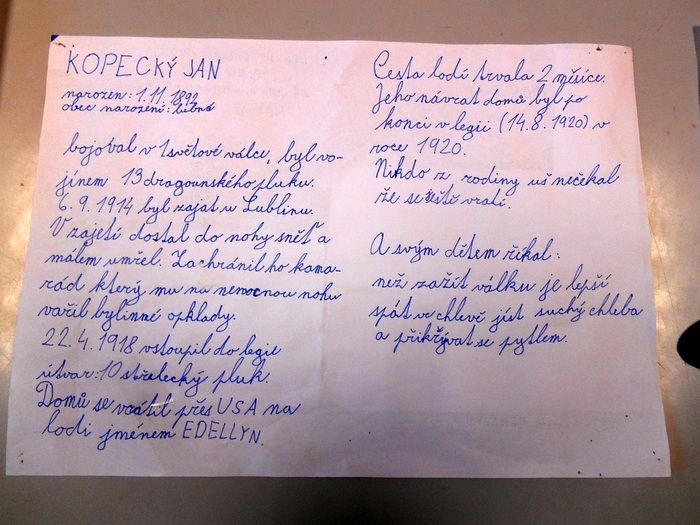 KOPECKÝ JAN
narozen: 1.11.1892
obec narození: Libná
bojobal v 1světové válce, byl vo-
jínem 13dragounského pluku.
6.9.1914 byl zajat u Lublinu.
V zajetí dostal do nohy sněť a
málem umřel. Zachránil ho kama-
rád který mu na nemocnou nohu
vařil bylinné opklady.
22.4.1918 vstoupil do legie
útvar:10 střelecký pluk.
Domů se vrátil přes USA na
lodi jménem EDELLYN.
Cesta lodí trvala 2 měsíce.
Jeho návrat domů byl po
konci v legii (14.8.1920) v
roce 1920.
Nikdo z rodiny uš nečekal
že se ještě vratí.
A svým dětem říkal:
než zažít válku je lepší
spát ve chlevě jíst suchý chleba
a přikrývat se pytlem.